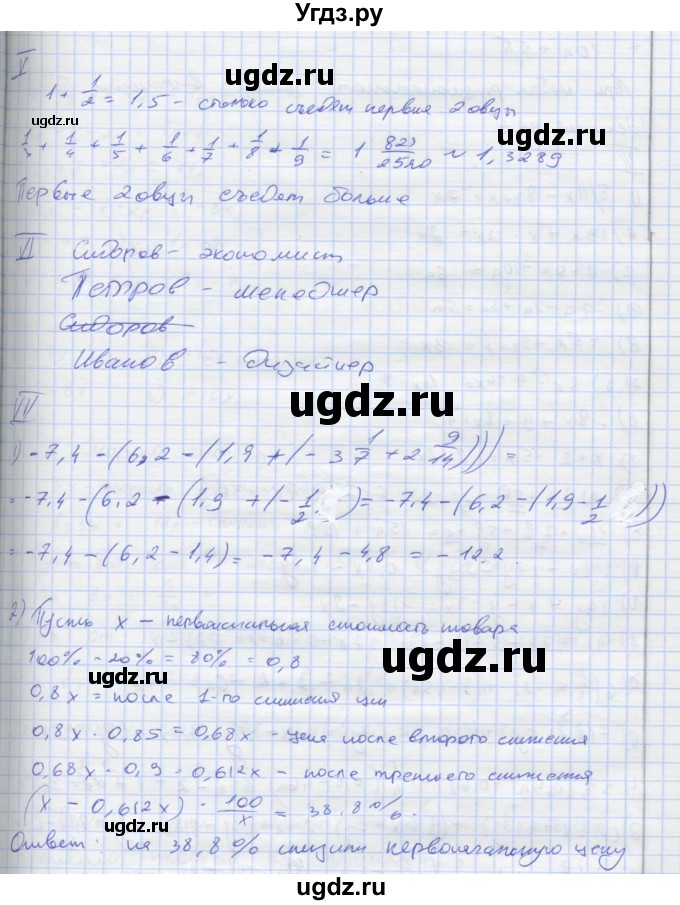 Угдз.ру
V
1 + 1/2 = 1,5 - столько съедят первые 2 овцы
1/3 + 1/4 + 1/5 + 1/6 + 1/7 + 1/8 + 1/9 = 1 823/2520 ~ 1,3289
Первые 2 овцы съедят больше
VI Сидоров - экономист
Петров - менеджер
Сидоров
Иванов - Дизайнер
VII
1) -7,4 - (6,2 - (1,9 + (-3 1/7 + 2 9/14))) =
= -7,4 - (6,2 - (1,9 + (-1/2) = -7,4 - (6,2 - (1,9 - 1/2))
= -7,4 - (6,2 - 1,4) = -7,4 - 4,8 = -12.2.
2) Пусть x - первоначальная стоимость товара
100% - 20% = 80% = 0,8
0,8x = после 1-го снижения цен
0,8x · 0,85 = 0,68x - цена после второго снижения
0,68x · 0,9 = 0,612x - после третьего снижения
(x - 0,612x) · 100/x = 38,8%.
Ответ: на 38,8% снизили первоначальную цену
ugdz.ru
ugdz.ru
ugdz.ru
ugdz.ru
ugdz.ru
ugdz.ru
ugdz.ru
ugdz.ru
ugdz.ru
ugdz.ru